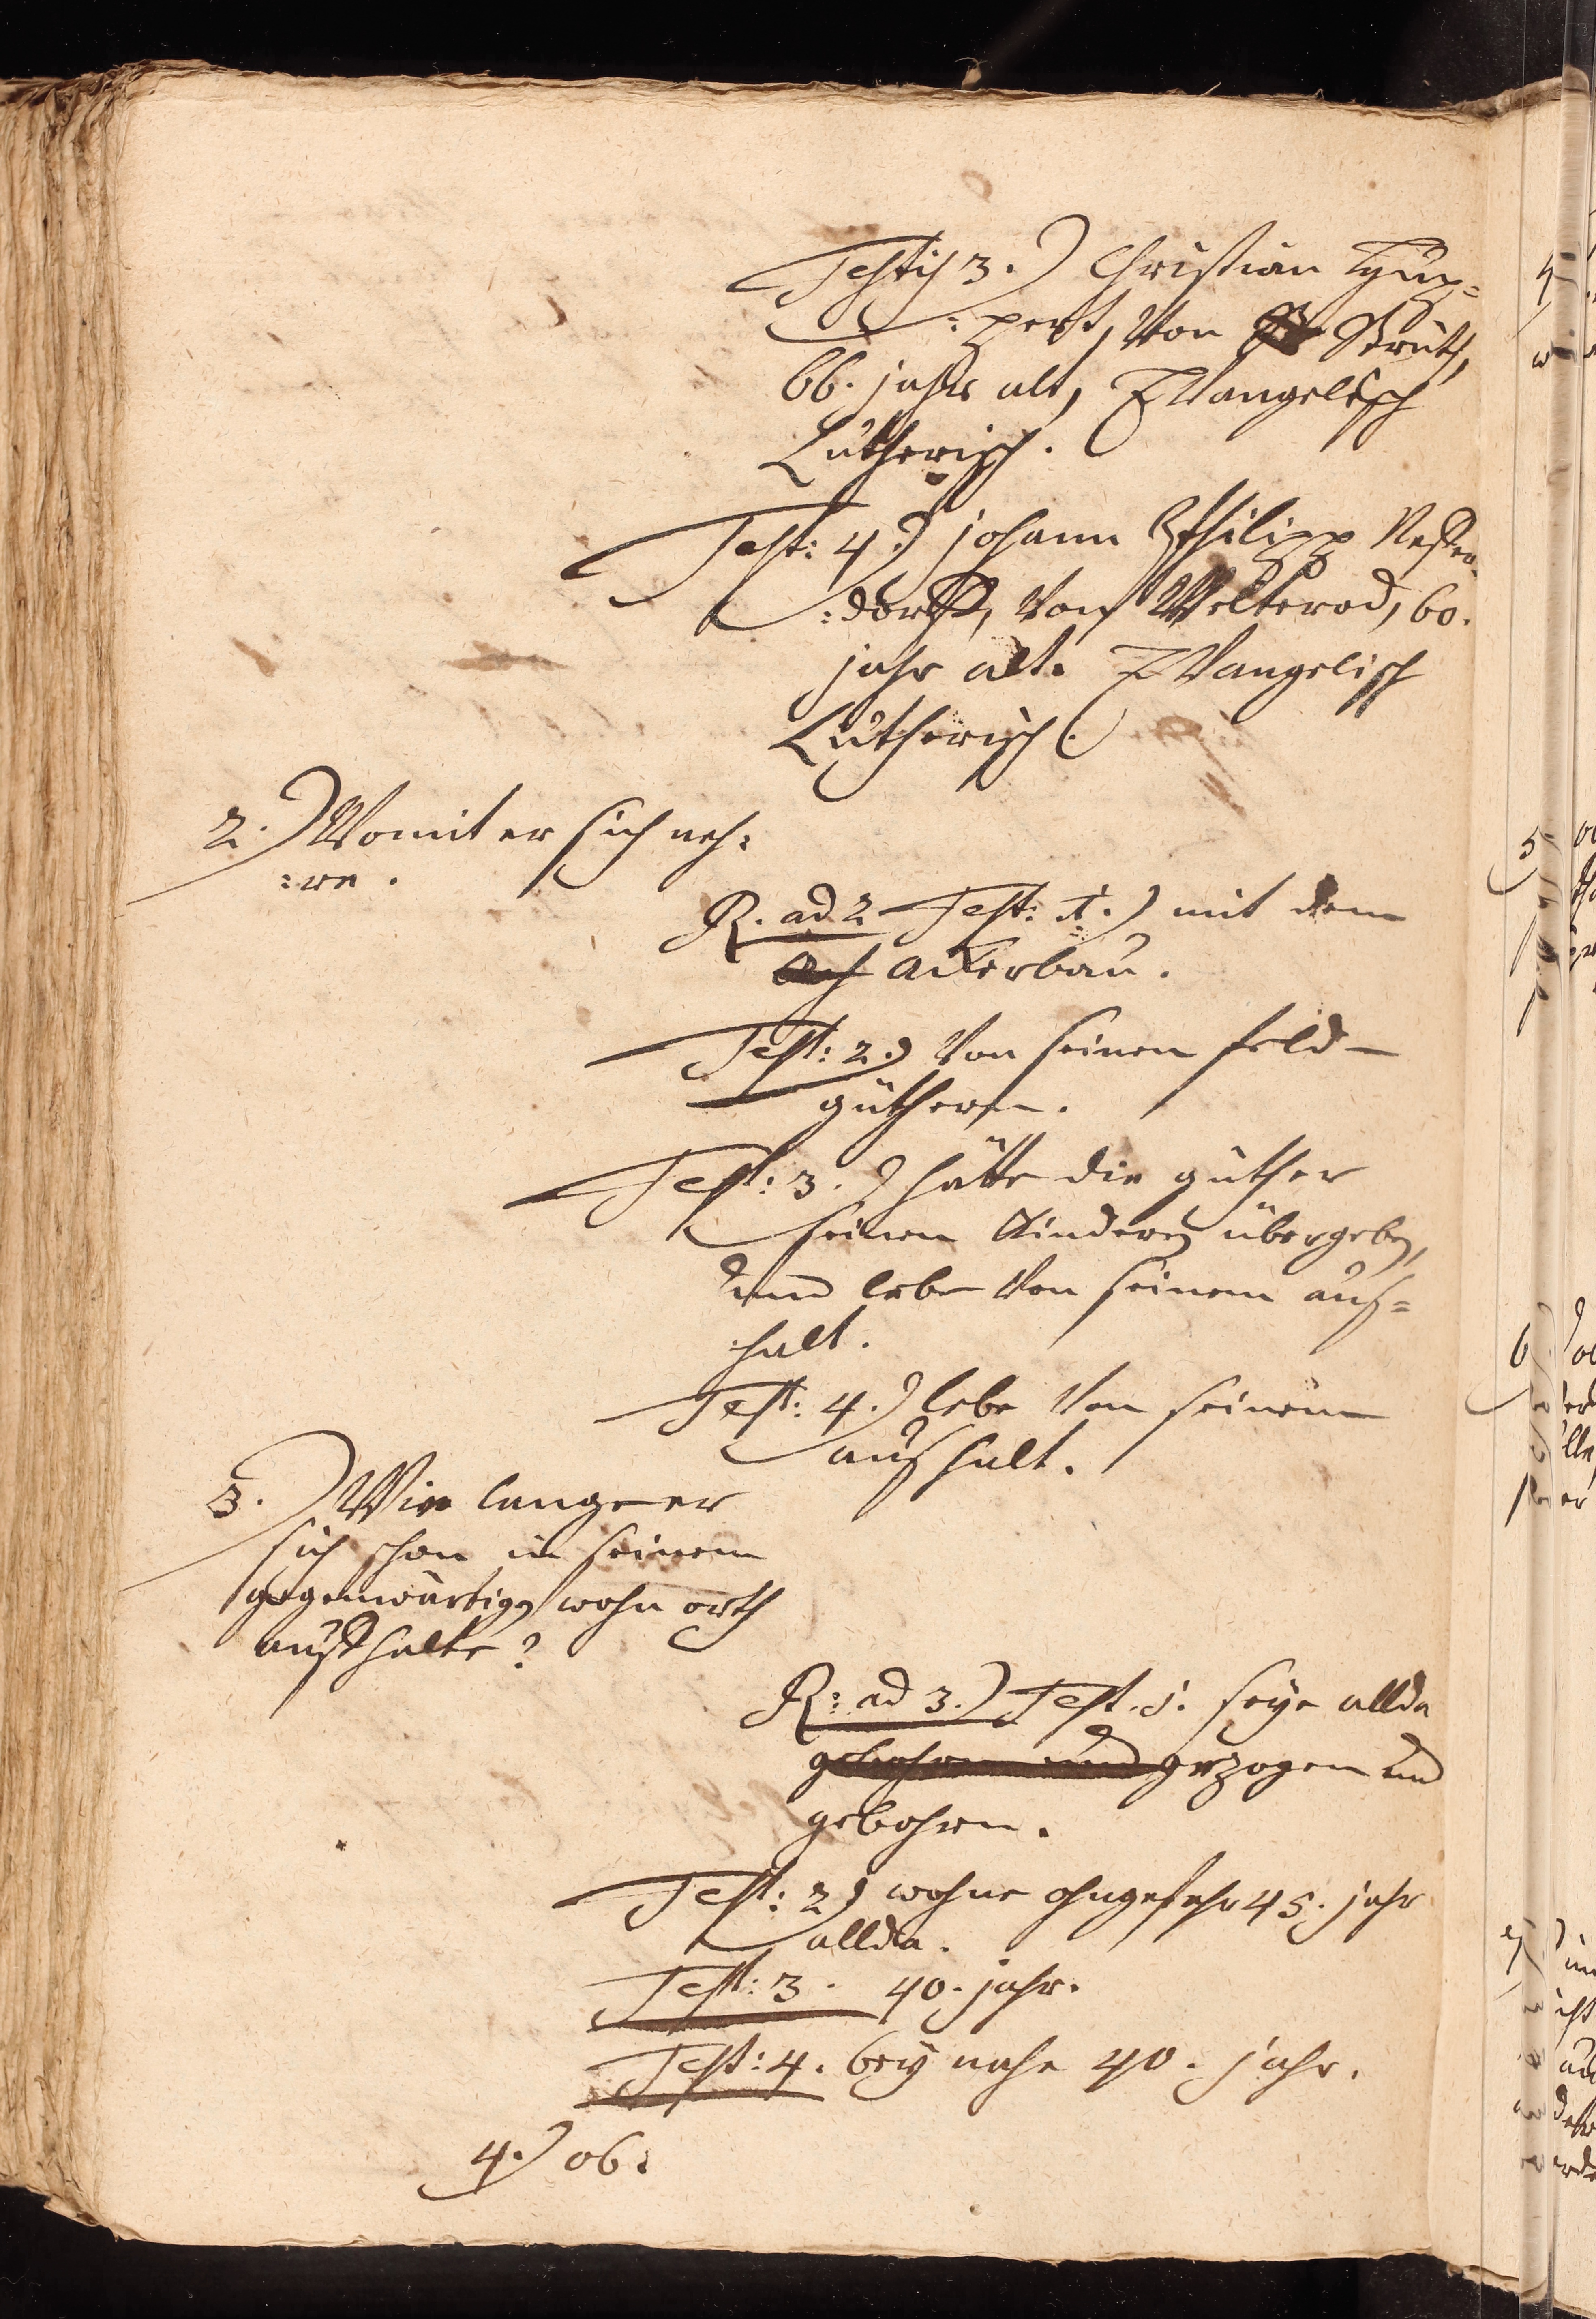 Testis 3.) Christian Hup=
=pert, Von Strüth,
66. jahr alt, EVangelisch
Lutherisch.
Test: 4.) johann Philipp
=dorff, Von Welterod, 60.
jahr alt. EVangelisch
Lutherisch.
2.) Womit er sich neh=
=re.
R. ad 2 Test: 1.) mit dem
ackerbau.
Test: 2.) Von seinen feld-
güthern.
Test: 3.) hätte die güther
seinen Kindern übergeben,
und lebe Von seinem auß=
halt.
Test: 4.) lebe Von seinem
außhalt.
3.) Wie lange er
sich schon in seinem
gegenwärtigen wohn orth
auffhalte?
R: ad 3.) Test. 1. seye allda
gebohren und gezogen und
gebohren.
Test: 2.) wohne ohngefehr 45. jahr
allda.
Test: 3. 40. jahr.
Test: 4. bey nahe 40. jahr.
4.) ob: